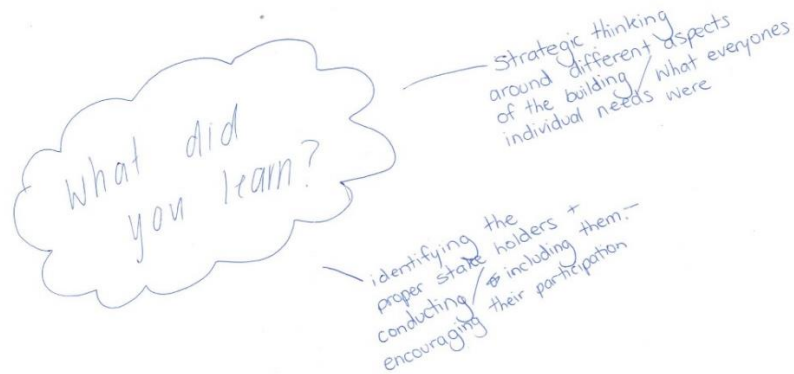 What did
you learn?
Strategic thinking
around different aspects
of the building / what everyones
individual needs were
identifying the
proper stake holders +
conducting / including them. -
encouraging their participation